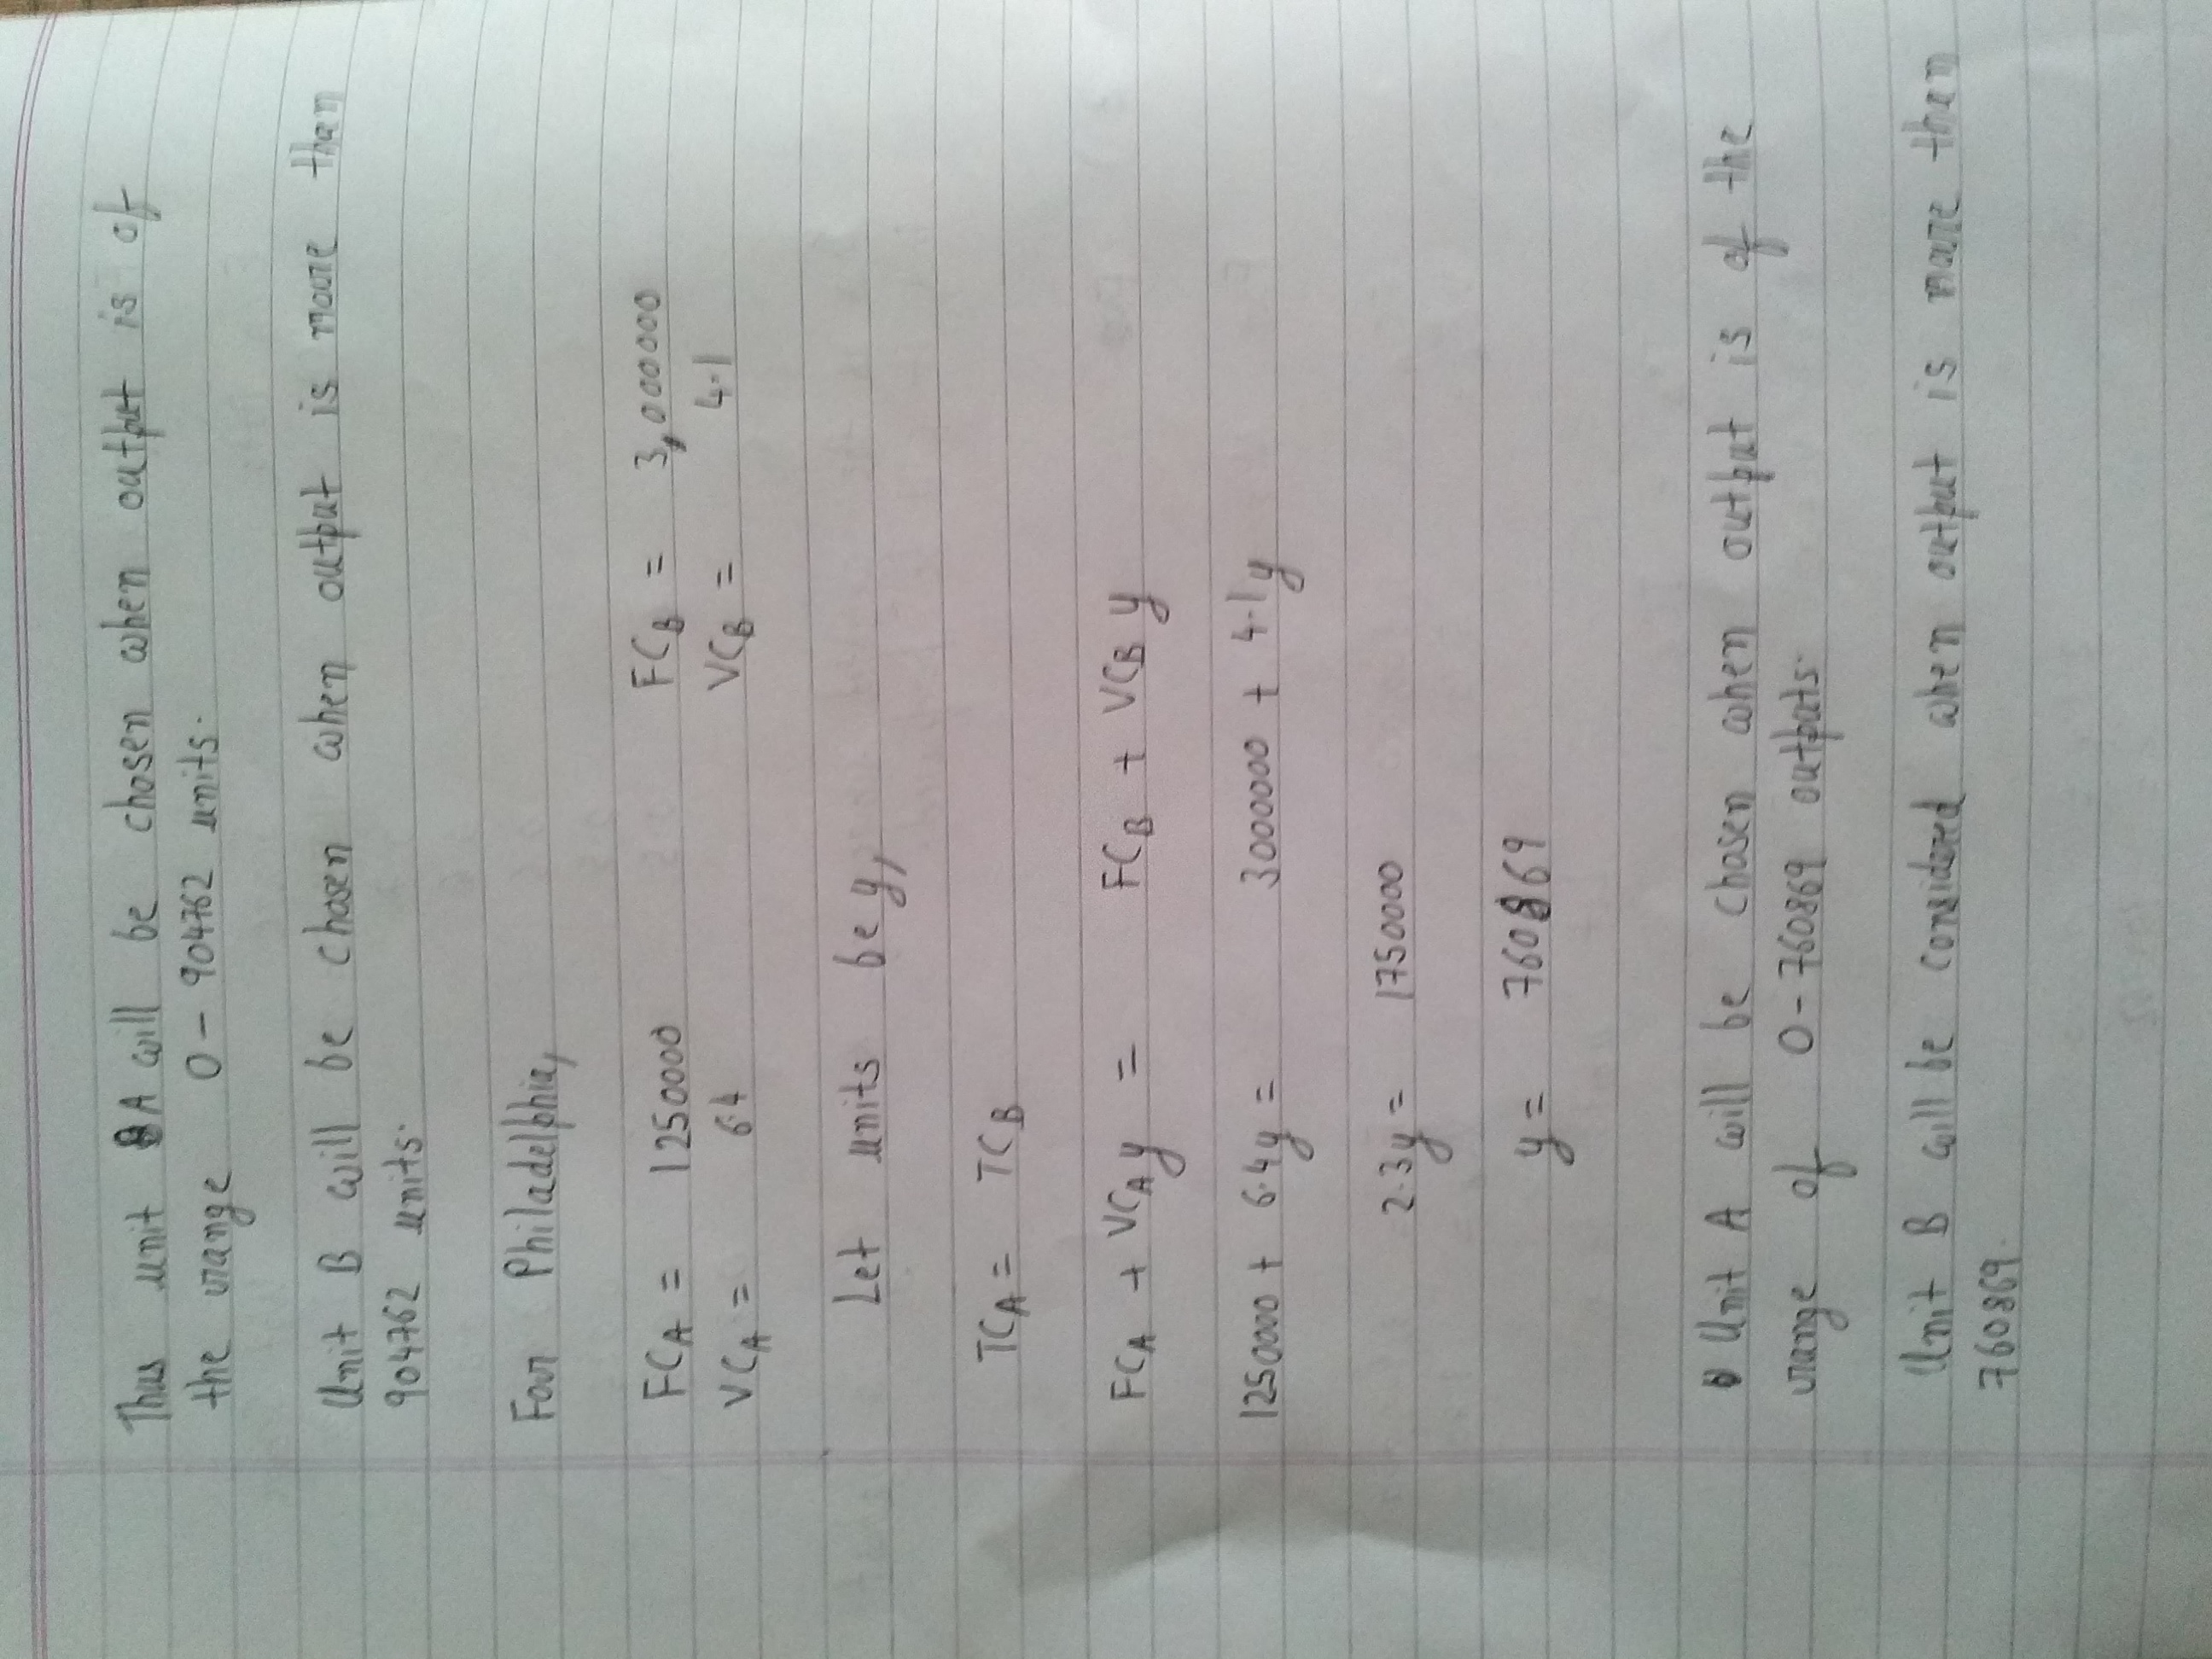 Thus unit A will be chosen when output is of
the range 0 - 904762 units.
Unit B will be chosen when output is more than
904762 units.
For Philadelphia,
FCA = 1250000 FCB = 3,000000
VCA = 6.4 VCB = 4.1
Let units be y,
TCA = TCB
FCA + VCAy = FCB + VCB y
1250000 + 6.4y = 3000000 + 4.1y
2.3y = 1750000
y = 760869
Unit A will be chosen when output is of the
range of 0-760869 outputs.
Unit B will be considered when output is more than
760869.